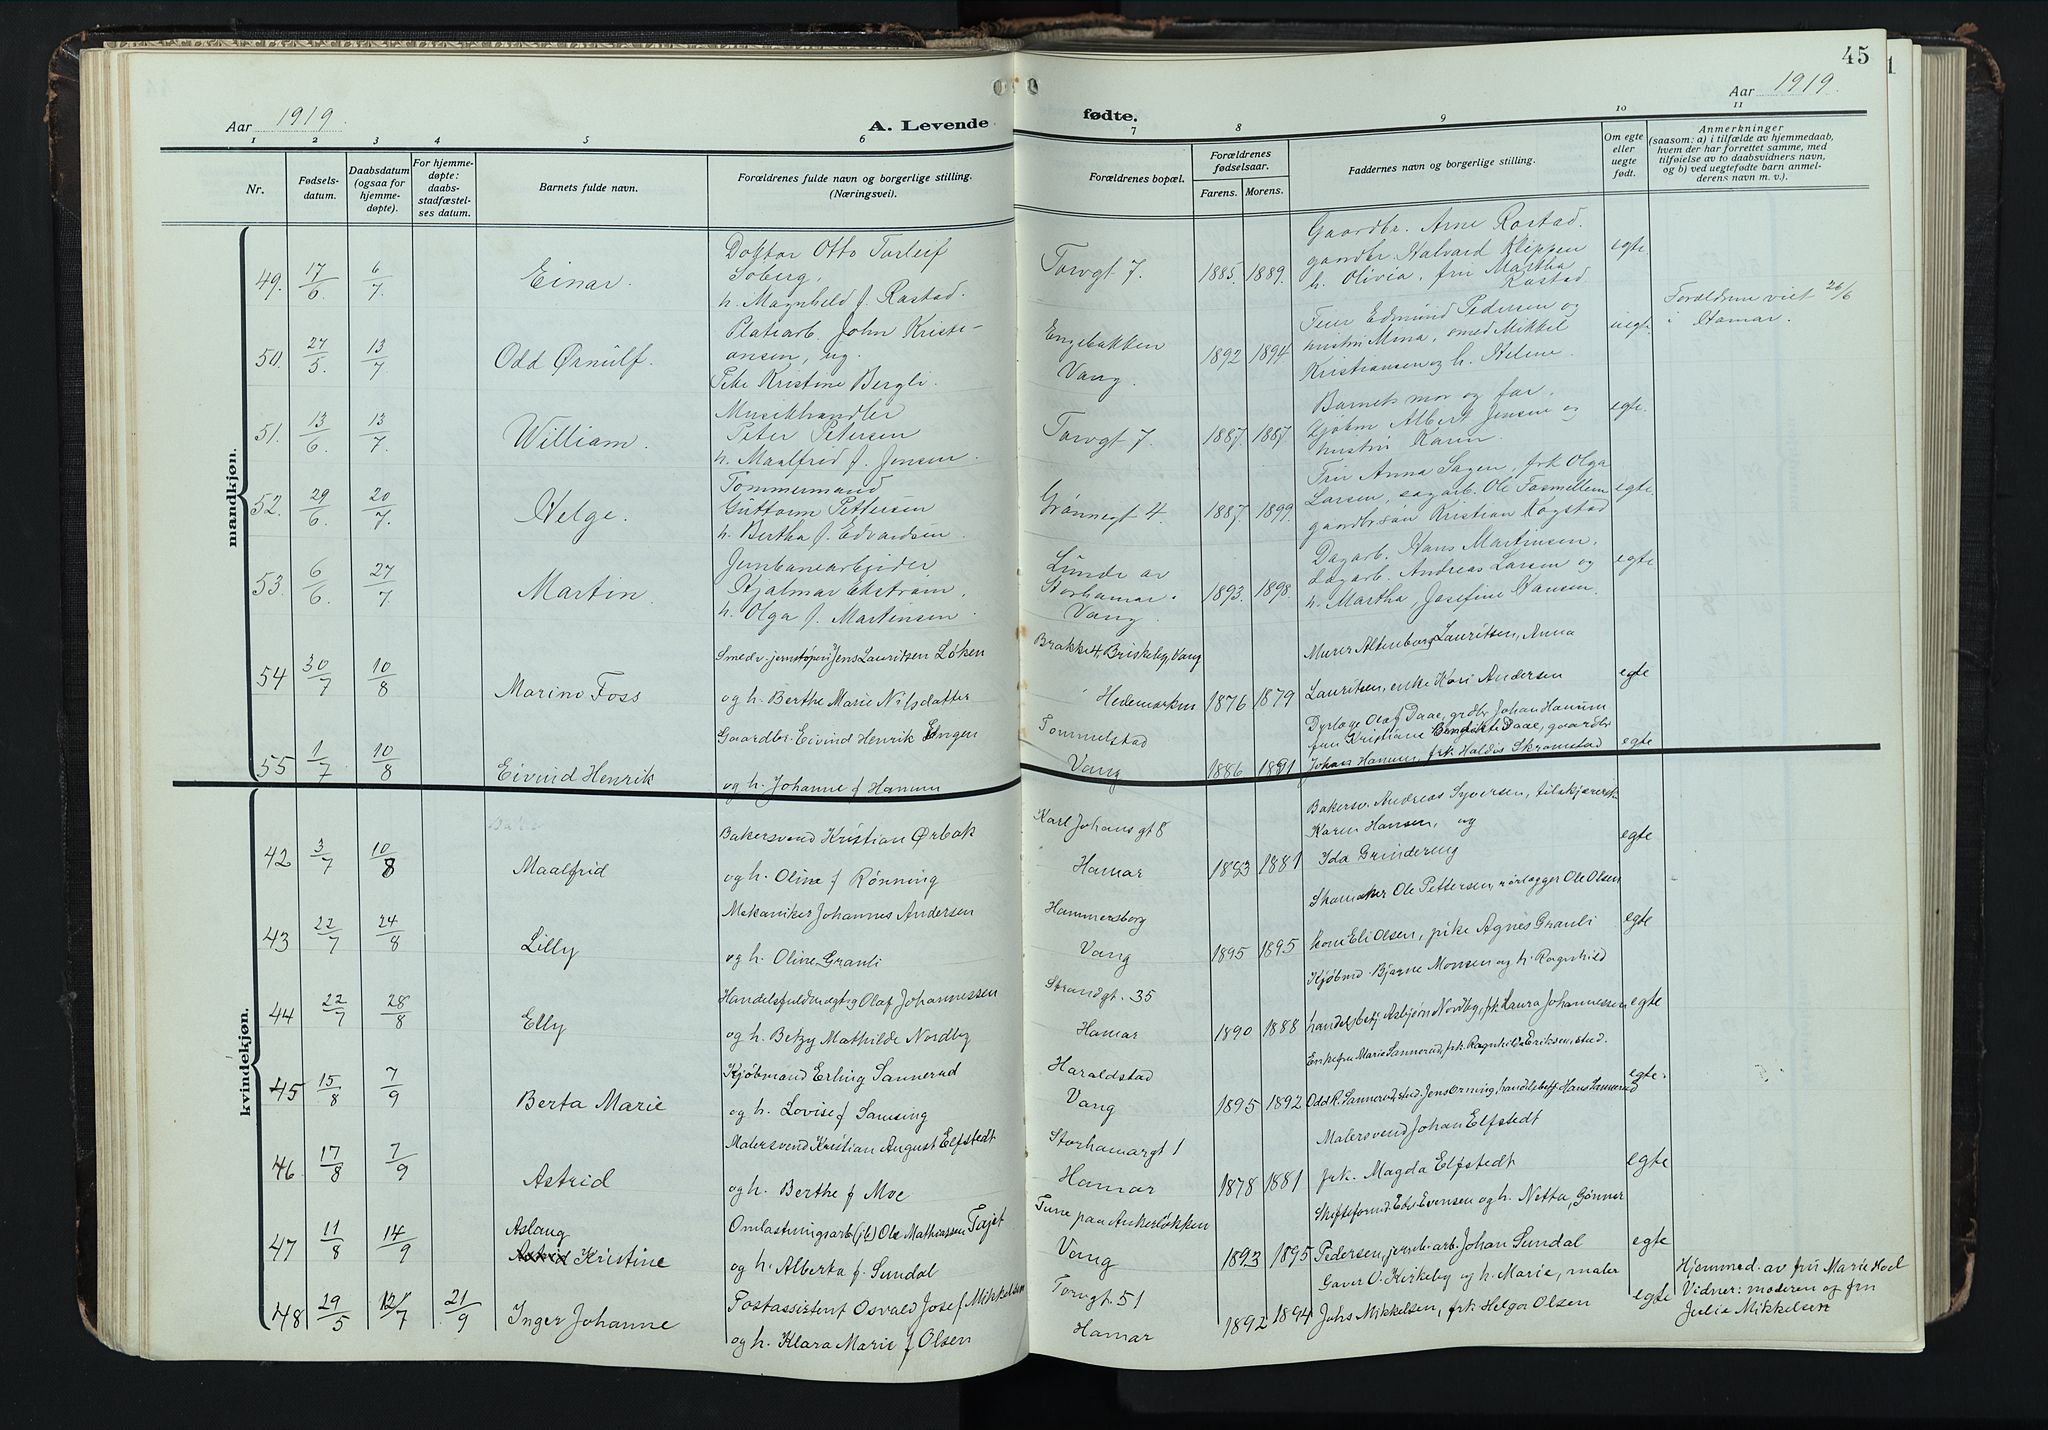 45
1
Aar 1919.
A. Levende fødte.
Aar 1919.
1 2 3 4 5 6 7 8 9 10 11
Nr.
Fødsels-
datum.
Daabsdatum
(ogsaa for
hjemme-
døpte).
For hjemme-
døpte:
daabs-
stadfæstel-
ses datum.
Barnets fulde navn.
Forældrenes fulde navn og borgerlige stilling.
(Næringsvei).
Forældrenes bopæl.
Forældrenes
fødselsaar.
Farens. Morens.
Faddernes navn og borgerlige stilling.
Om egte
eller
uegte
født.
Anmerkninger
(saasom: a) i tilfælde av hjemmedaab,
hvem der har forrettet samme, med
tilføielse av to daabsvidners navn,
og b) ved uegtefødte barn anmel-
derens navn m. v.).
mandkjøn.
49. 17/6 6/7 Einar.
Doktor Otto Torleif
Soberg
h. Magnhild f. Rostad.
Torvgt 7. 1885. 1889.
Gaardbr. Arne Rostad.
gaardbr. Halvard Kleppen
h. Olivia, fru Martha
Rostad.
egte
50. 27/5. 13/7 Odd Ørnulf.
Platearb. John Kristi-
ansen, ug.
Pike Kristine Bergli.
Engebakken
Vang.
1892 1894
Feier Edmund Pedersen og
hustru Mina, smed Mikkel
Kristiansen og h. Helene.
uegt.
Forældrene viet 26/6
i Hamar.
51. 13/6. 13/7. William.
Musikhandler
Peter Petersen
h. Maalfrid f. Jensen.
Torvgt 7. 1887. 1887
Barnets mor og far,
Kjøbm Albert Jensen og
hustru Karen.
egte.
52. 29/6. 20/7. Helge.
Tømmermand
Guttorm Pettersen
h. Bertha f. Edvardsen.
Grønnegt 4. 1887. 1899.
Fru Anna Sagen, frk Olga
Larsen, sagarb. Ole Fosmellem
gaardbrsøn Kristian Kogstad
egte.
53. 6/6. 27/7 Martin.
Jernbanearbeider
Hjalmar Ekstrøm,
h. Olga f. Martinsen.
Lunde av
Storhamar.
Vang.
1893. 1898.
Dagarb. Hans Martinsen,
dagarb. Andreas Larsen og
h. Martha, Josefine Hansen.
egte
54 30/7 10/8 Marino Foss
Smedv. jernstøperi Jens Lauritsen Løken
og h. Berthe Marie Nilsdatter
Brakke 4, Briskeby, Vang
Hedemarken
1876 1879
Murer Altenborg Lauritsen, Anna
Lauritsen, enke Kari Andersen
egte
55 1/7 10/8 Eivind Henrik
Gaardbr. Eivind Henrik Engen
og h. Johanne f Hanum
Tommelstad
Vang
1886 1891
Dyrlæge Olaf Daae, grdbr Johan Hanum
fru Kristiane Bendikte Daae, gaardbr
Johan Hanum, frk. Haldis Skramstad
egte
kvindekjøn.
42 3/7 10/8 Maalfrid
Bakersvend Kristian Ørbak
og h. Oline f Rønning
Karl Johans gt 8
Hamar
1883 1881
Bakersv. Andreas Syversen, tilskjærersk.
Karen Hansen, og
Ida Grindereng
egte
43 22/7 24/8 Lilly
Mekaniker Johannes Andersen
og h. Oline Granli
Hammersborg
Vang
1895 1895
Skomaker Ole Pettersen, rørlegger Ole Olsen
kone Eli Olsen, pike Agnes Granli
egte
44 22/7 28/8 Elly
Handelsfuldmægtig Olaf Johannessen
og h. Betzy Mathilde Nordby
Strandgt. 35
Hamar
1890 1888
Kjøbmd. Bjarne Monsen og h. Ragnhild
handelsbetj Asbjørn Nordby, frk Laura Johannessen
egte
45 15/8 7/9 Berta Marie
Kjøbmand Erling Sannerud
og h. Lovise f Samsing
Haraldstad
Vang
1895 1892
Enkefru Marie Sannerud, frk. Ragnhild Eriksen, stud.
Odd R. Sannerud, stud. Jens Orning, handelsbetj Hans Sannerud
egte.
46 17/8 7/9 Astrid
Malersvend Kristian August Elfstedt
og h. Berthe f Moe
Storhamargt 1
Hamar
1878 1881
Malersvend Johan Elfstedt
frk. Magda Elfstedt
egte
47 11/8 14/9 Aslaug
Astrid Kristine
Omlastningsarb (jb) Ole Mathiassen Tajet
og h. Alberta f. Sundal
Tune paa Ankerløkken
Vang
1893 1895
Skifteformd. Edv Evensen og h. Netta, Gunnar
Pedersen, jernb. arb. Johan Sundal
egte
48 29/5 12/7 21/9 Inger Johanne
Postassistent Osvald Josef Mikkelsen
og h. Klara Marie f Olsen
Torvgt. 51
Hamar
1892 1894
Gaver O. Kirkeby og h. Marie, maler
Johs Mikkelsen, frk. Helga Olsen
egte
Hjemmed. av fru Marie Hoel
Vidner: moderen og fru
Julia Mikkelsen